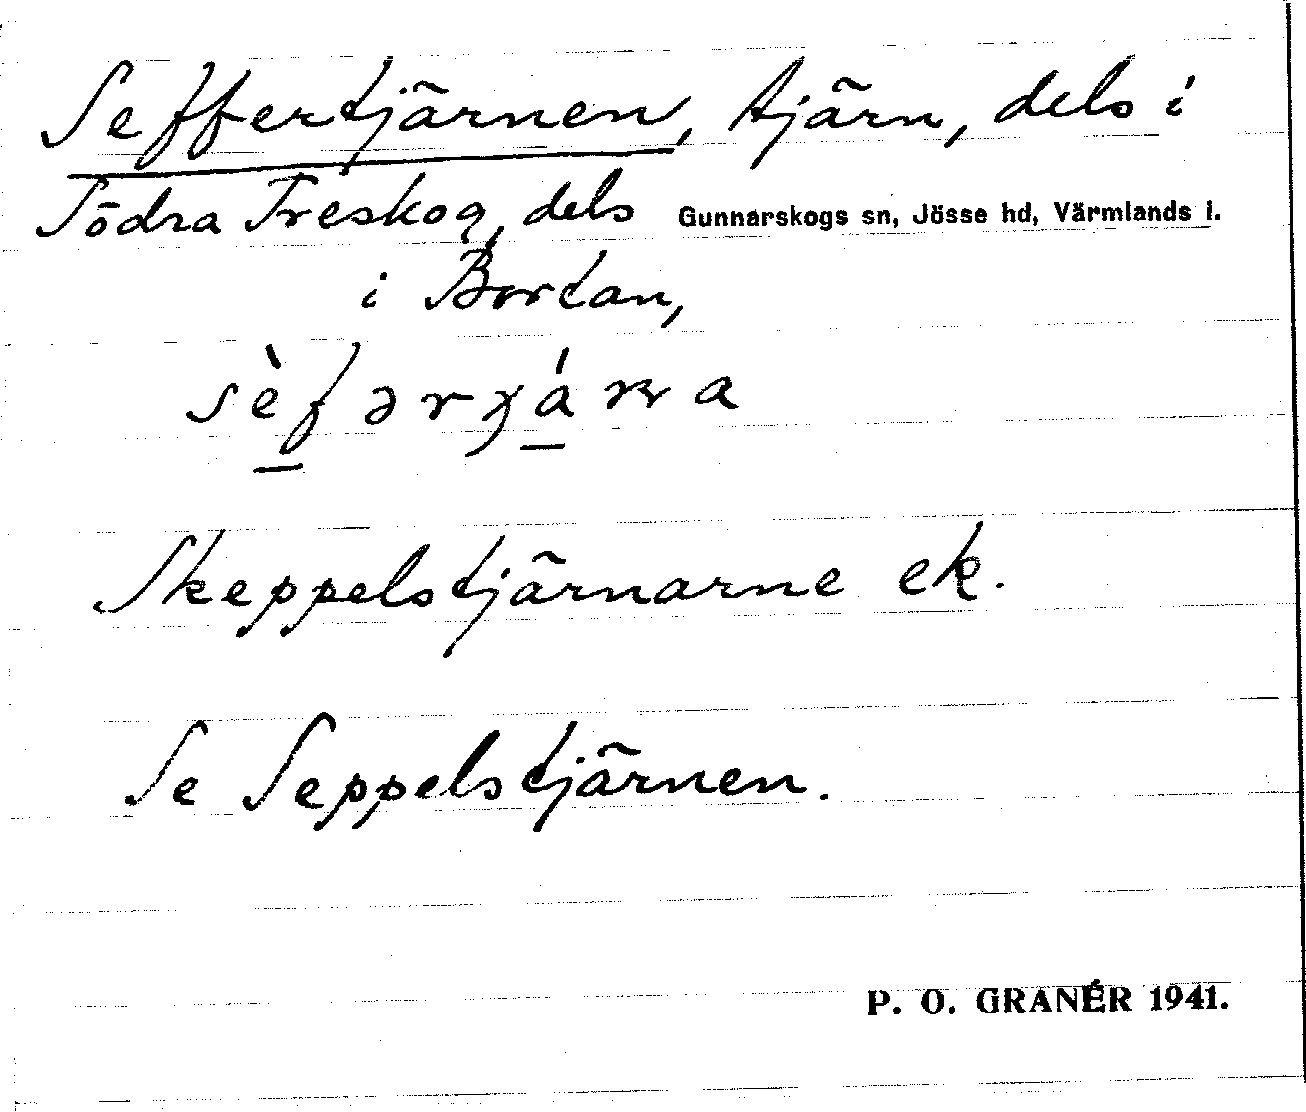 Seffertjärnen, tjärn, dels i
Södra Treskog, dels Gunnarskogs sn, Jösse hd, Värmlands l.
i Bortan,
Skeppelstjärnarne ek.
Se Seppelstjärnen.
P. O. GRANÉR 1941.